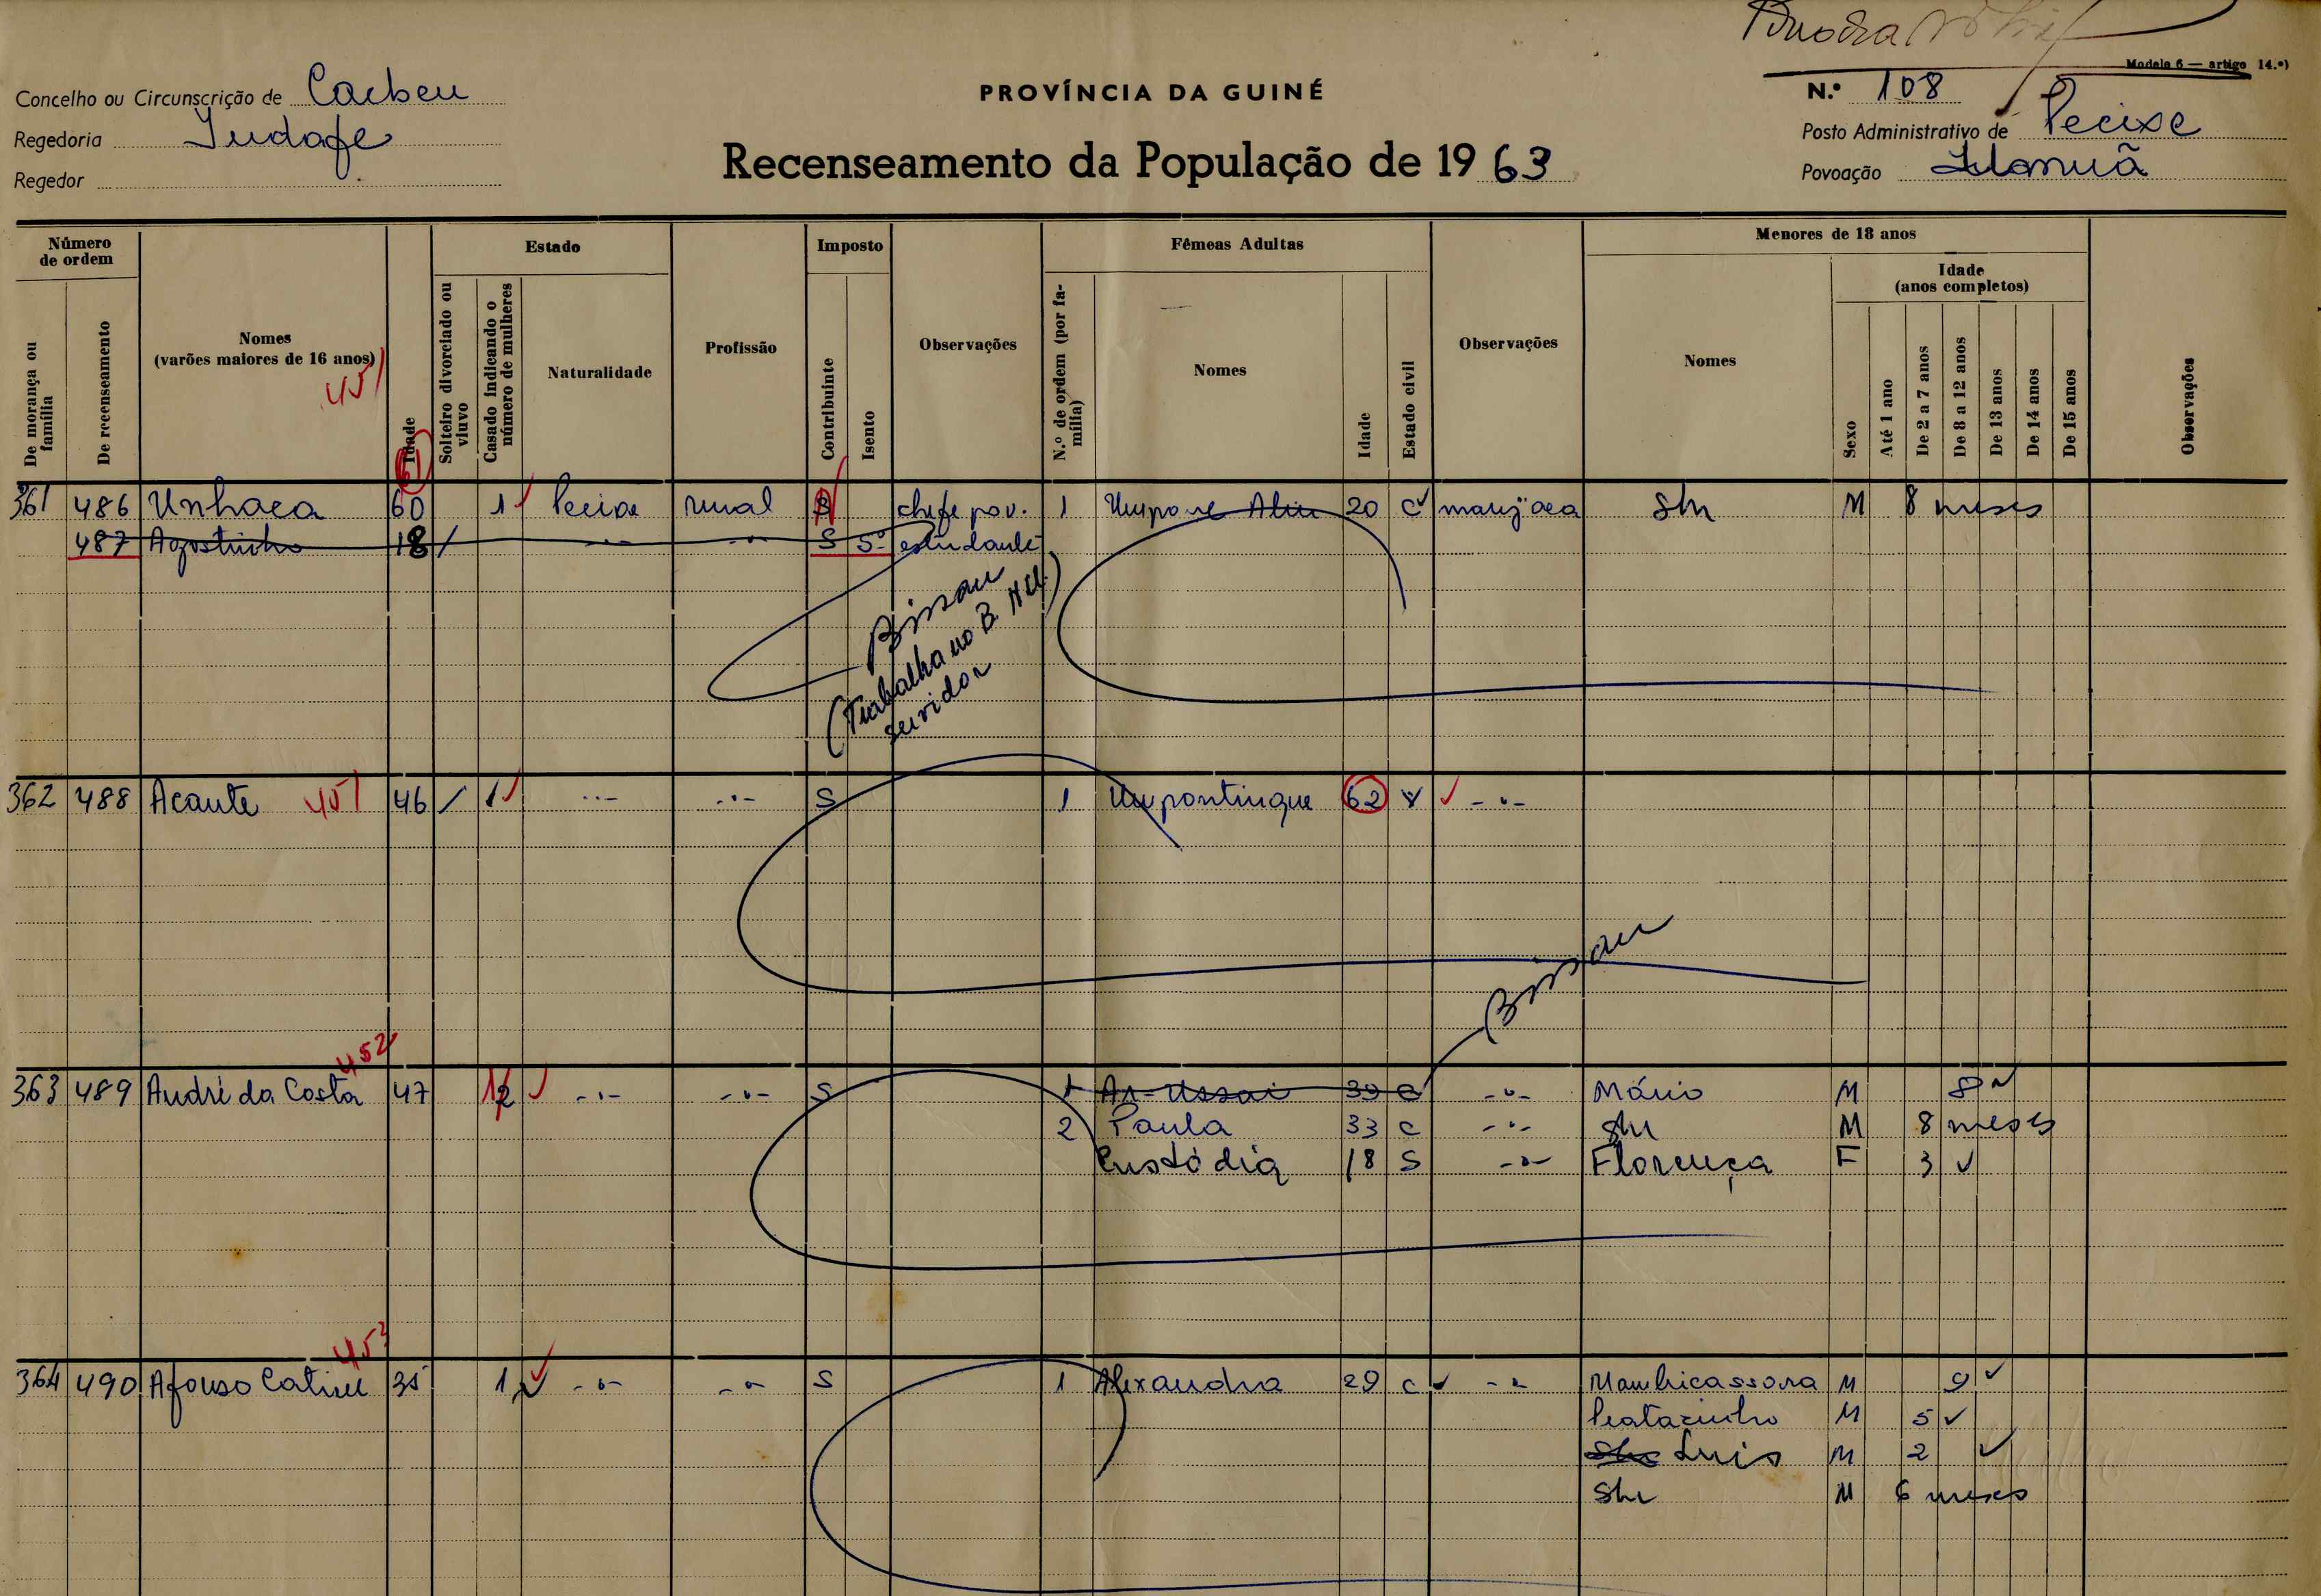 Modelo 6 — artigo 14.º)
Concelho ou Circunscrição de Cacheu
PROVÍNCIA DA GUINÉ
N.º 108
Regedoria
Posto Administrativo de Pecixe
Recenseamento da População de 1963
Regedor
Povoação
Número de ordem
Estado
Imposto
Fêmeas Adultas
Menores de 18 anos
Idade
(anos completos)
De morança ou família
De recenseamento
Nomes
(varões maiores de 16 anos)
451
Idade
Solteiro divorciado ou viuvo
Casado indicando o número de mulheres
Naturalidade
Profissão
Contribuinte
Isento
Observações
N.º de ordem (por família)
Nomes
Idade
Estado civil
Observações
Nomes
Sexo
Até 1 ano
De 2 a 7 anos
De 8 a 12 anos
De 13 anos
De 14 anos
De 15 anos
Observações
61
361 486 Unhaca 60 1 Pecixe rural S chefe pov. 1 20 C manjaca Sn M 8 meses
487 Agostinho 18 / -"- -"- S estudante
Bissau
(Trabalha no B. N. U.)
servidor
362 488 Acante 451 46 / 1 -"- -"- S 1 Umpontingue 62 v -"-
Bissau
452
363 489 André da Costa 47 12 -"- -"- S 1 An-Ussai 39 C -"- Mário M 8
2 Paula 33 C -"- Sn M 8 meses
Custódia 18 S -"- Florença F 3
453
364 490 Afonso Catiru 35 1 -"- -"- S 1 Alexandra 29 C -"- Mambicassora M 9
M 5
Sn Luis M 2
Sn M 6 meses